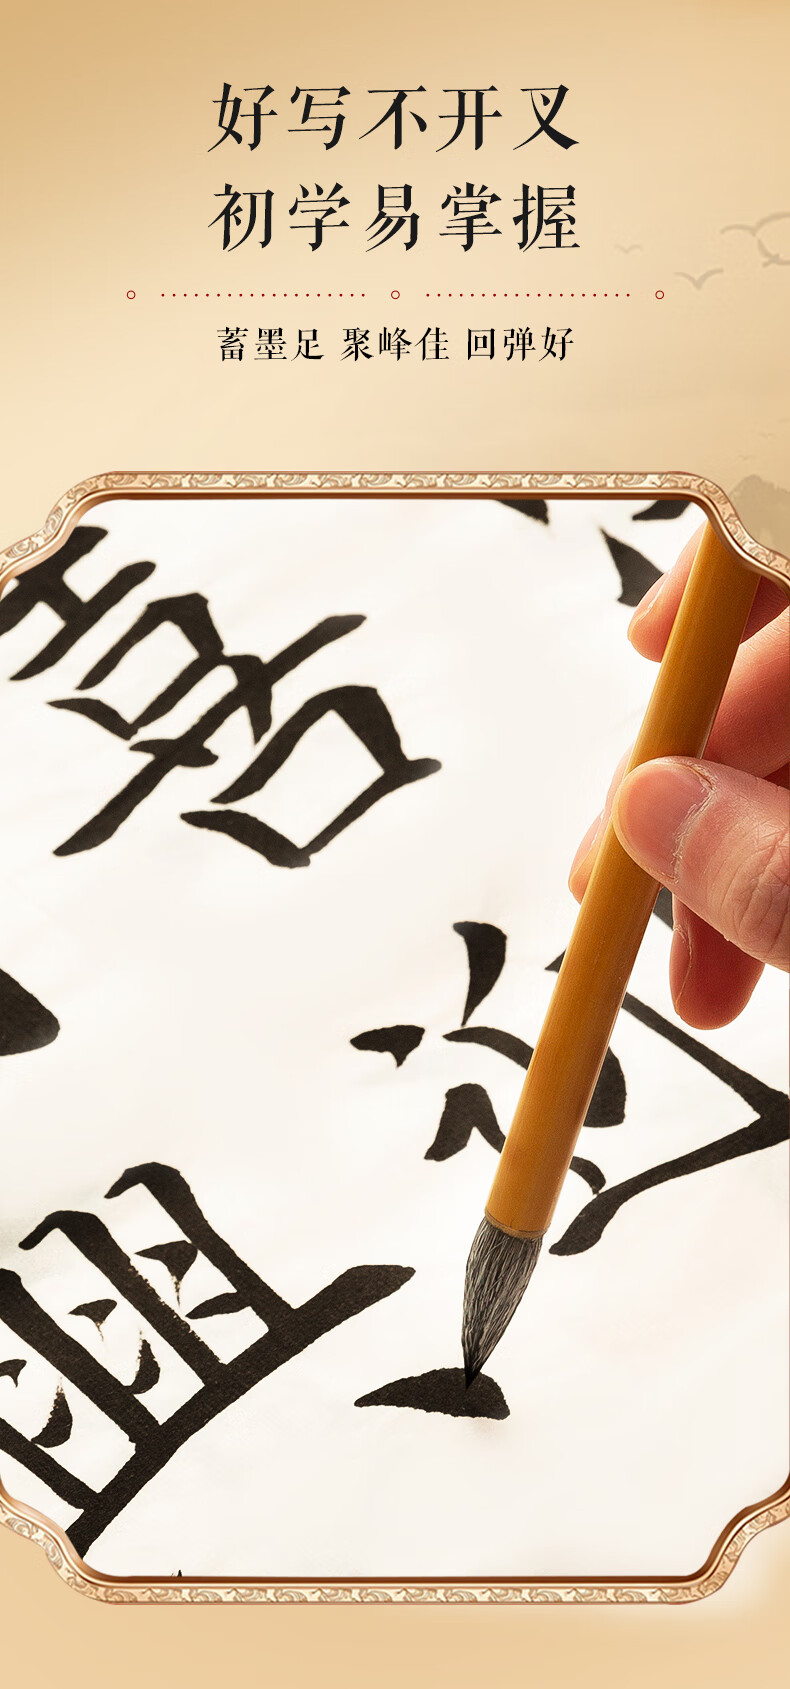 好写不开叉
初学易掌握
蓄墨足 聚峰佳 回弹好